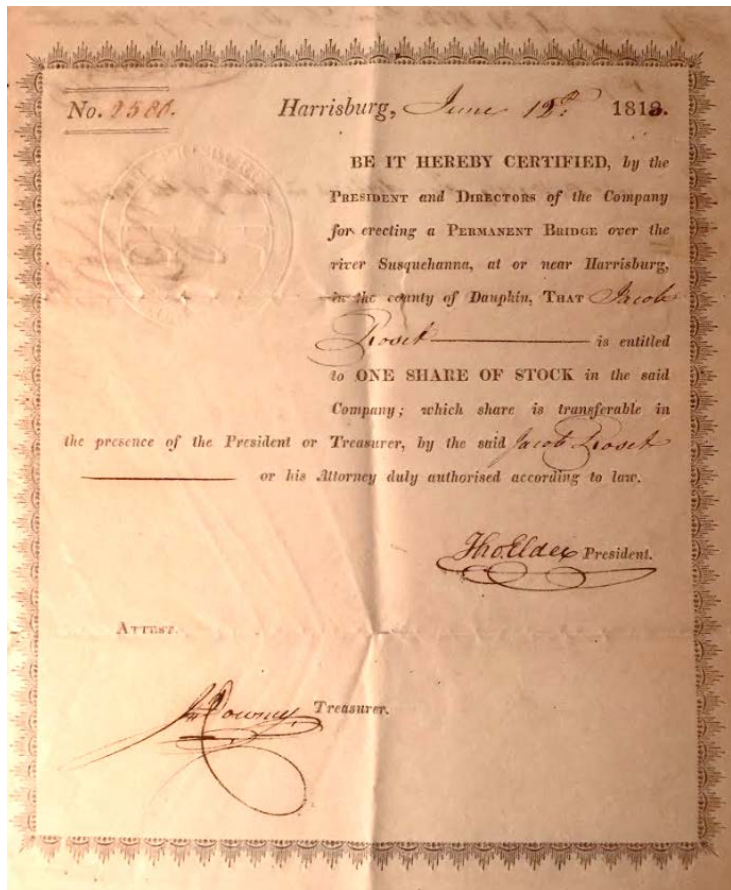 No. 2580. Harrisburg, June 12th 1813.
BE IT HEREBY CERTIFIED, by the
PRESIDENT and DIRECTORS of the Company
for erecting a PERMANENT BRIDGE over the
river Susquehanna, at or near Harrisburg,
in the county of Dauphin, THAT Jacob
is entitled
to ONE SHARE OF STOCK in the said
Company; which share is transferable in
the presence of the President or Treasurer, by the said Jacob
or his Attorney duly authorised according to law.
Tho Elder President.
ATTEST.
Jn Downey Treasurer.